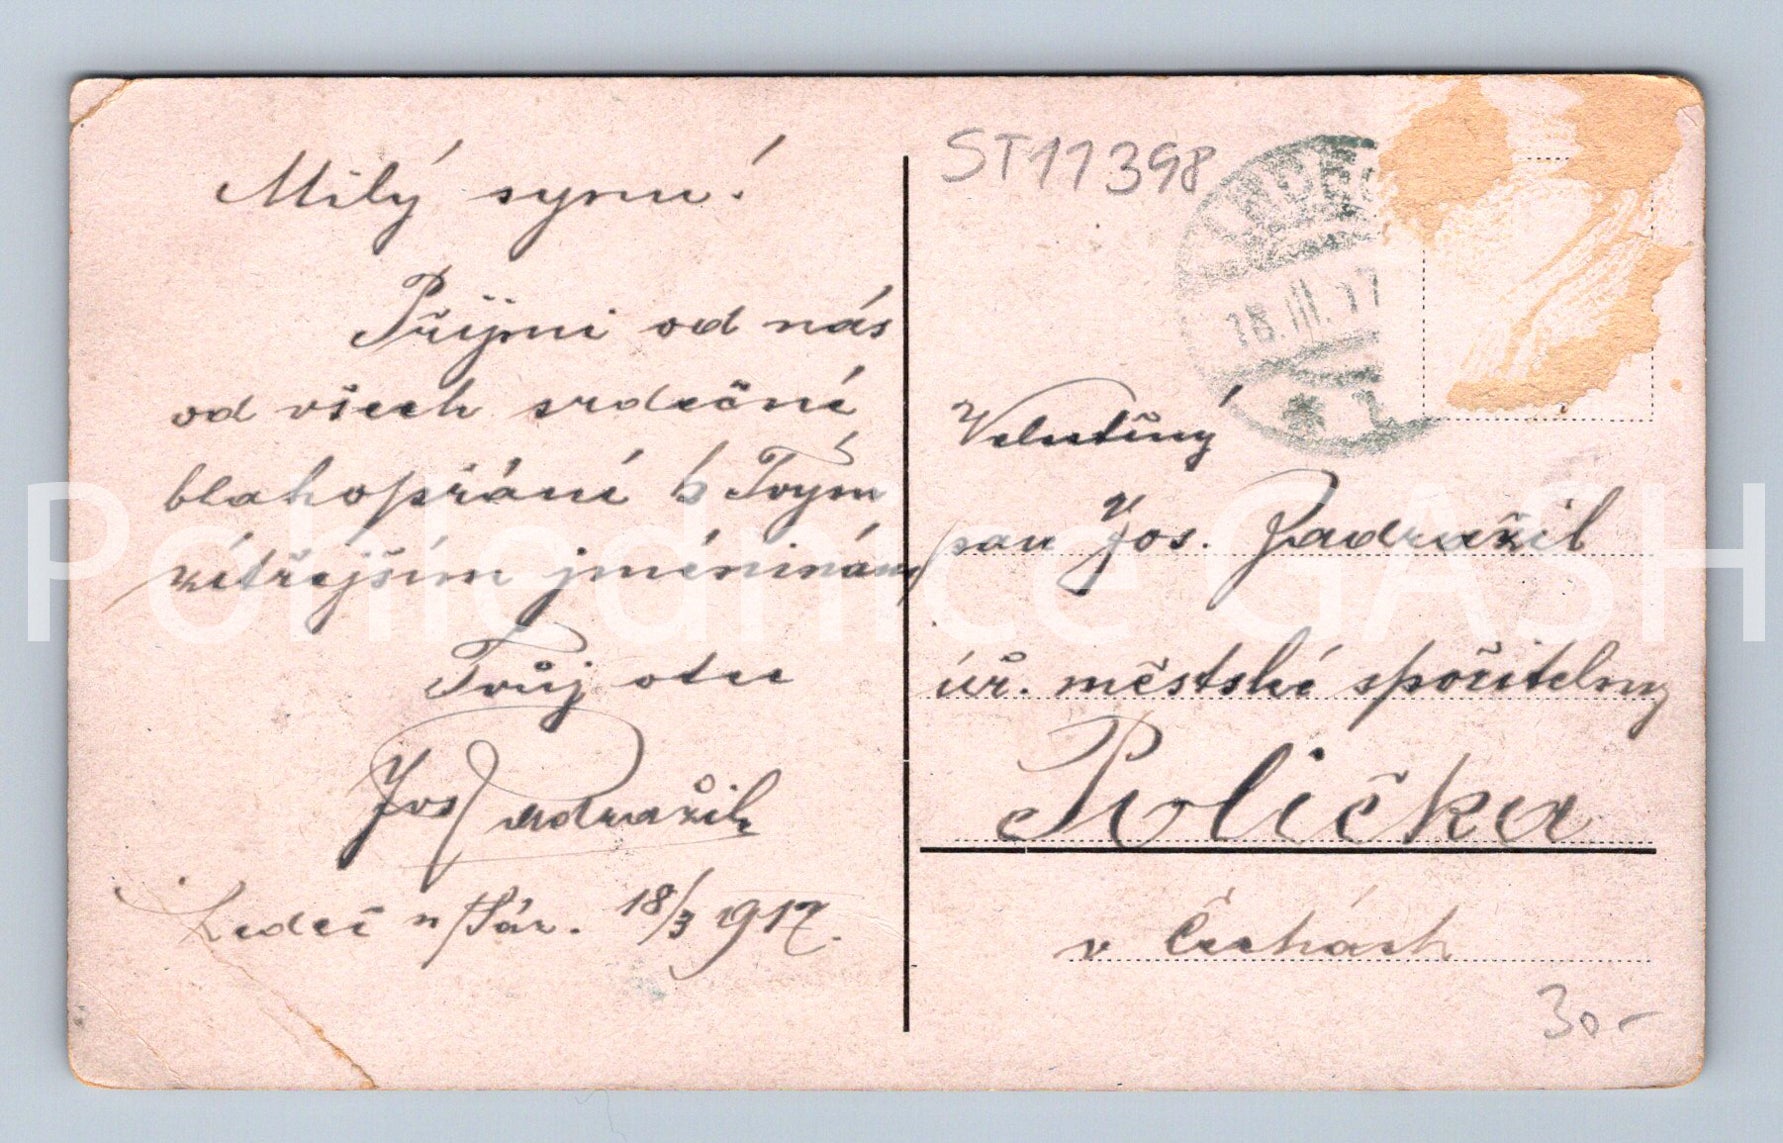 Milý synu!
Přijmi od nás
od všech srdečné
blahopřání k Tvým
zítřejším jmeninám
Tvůj otec
Jos Zadražil
Ledeč n/Sáz. 18/3 1917.
ST11398
18.III.17
Velectěný
pan Jos. Zadražil
úř. městské spořitelny
Polička
v Čechách
30-
Pohlednice GASH